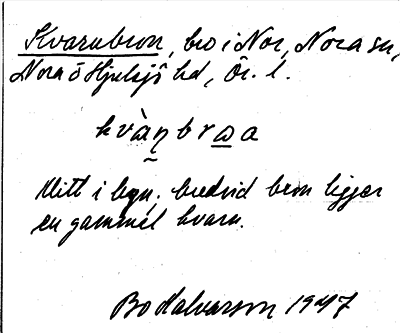 Kvarnbron, bro i Nor, Nora sn,
Nora o Hjulsjö hd, Ör. l.
kvàṇbrωa
Mitt i byn; bredvid bron ligger
en gammal kvarn.
Bo Halvarson 1947